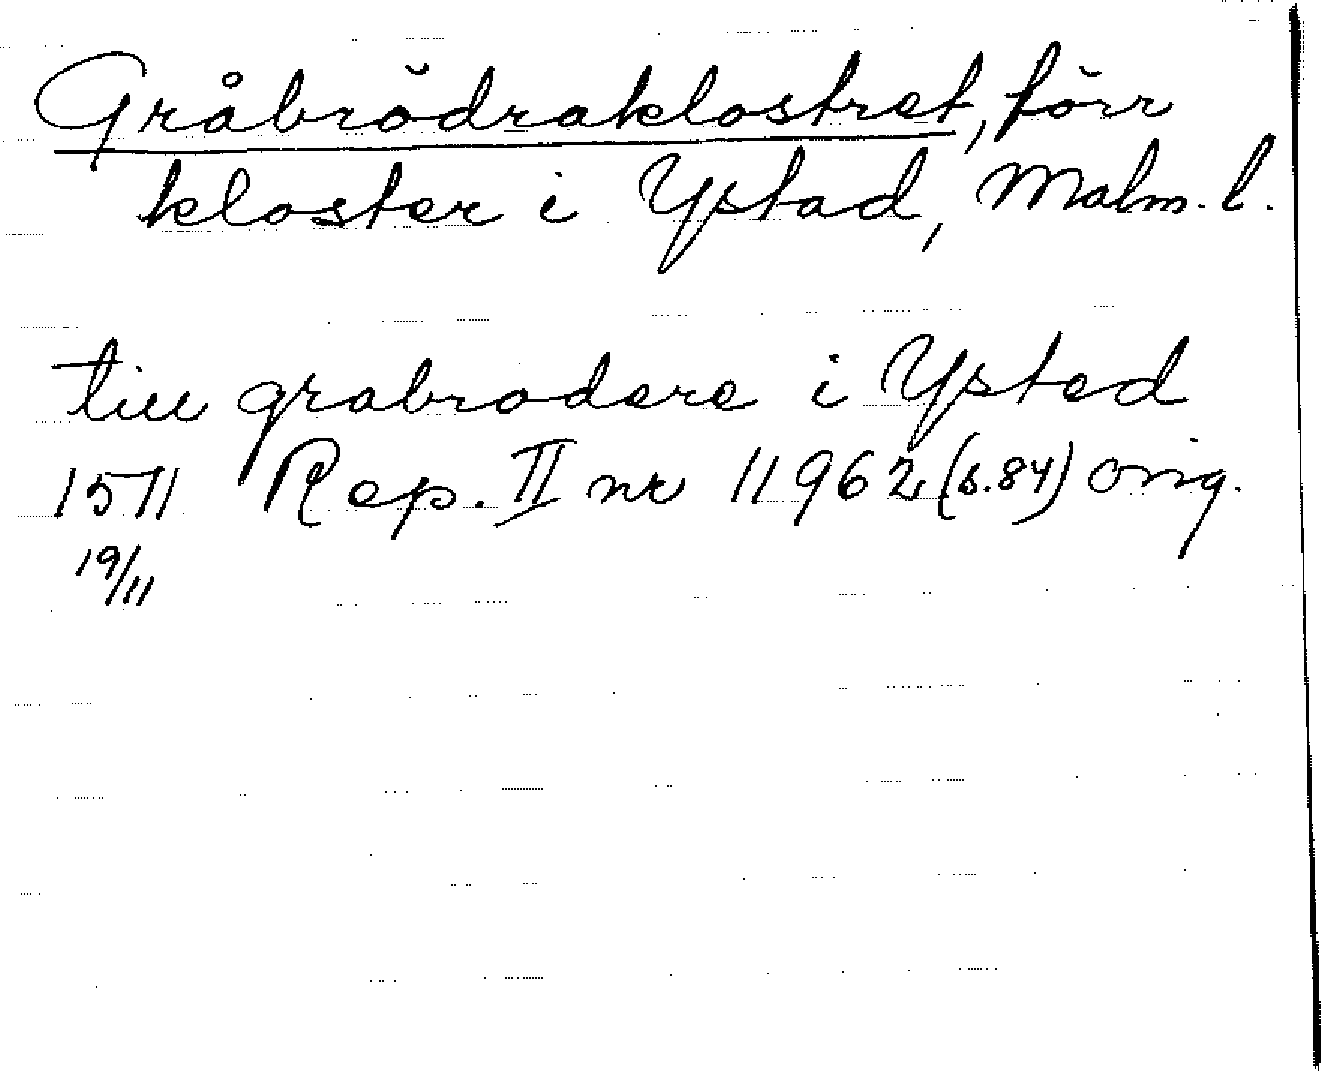 Gråbrödraklostret, förr
kloster i Ystad, Malm. l.
till grabrodere i Ysted
1511 Rep. II nr 11962 (s.84) orig.
19/11